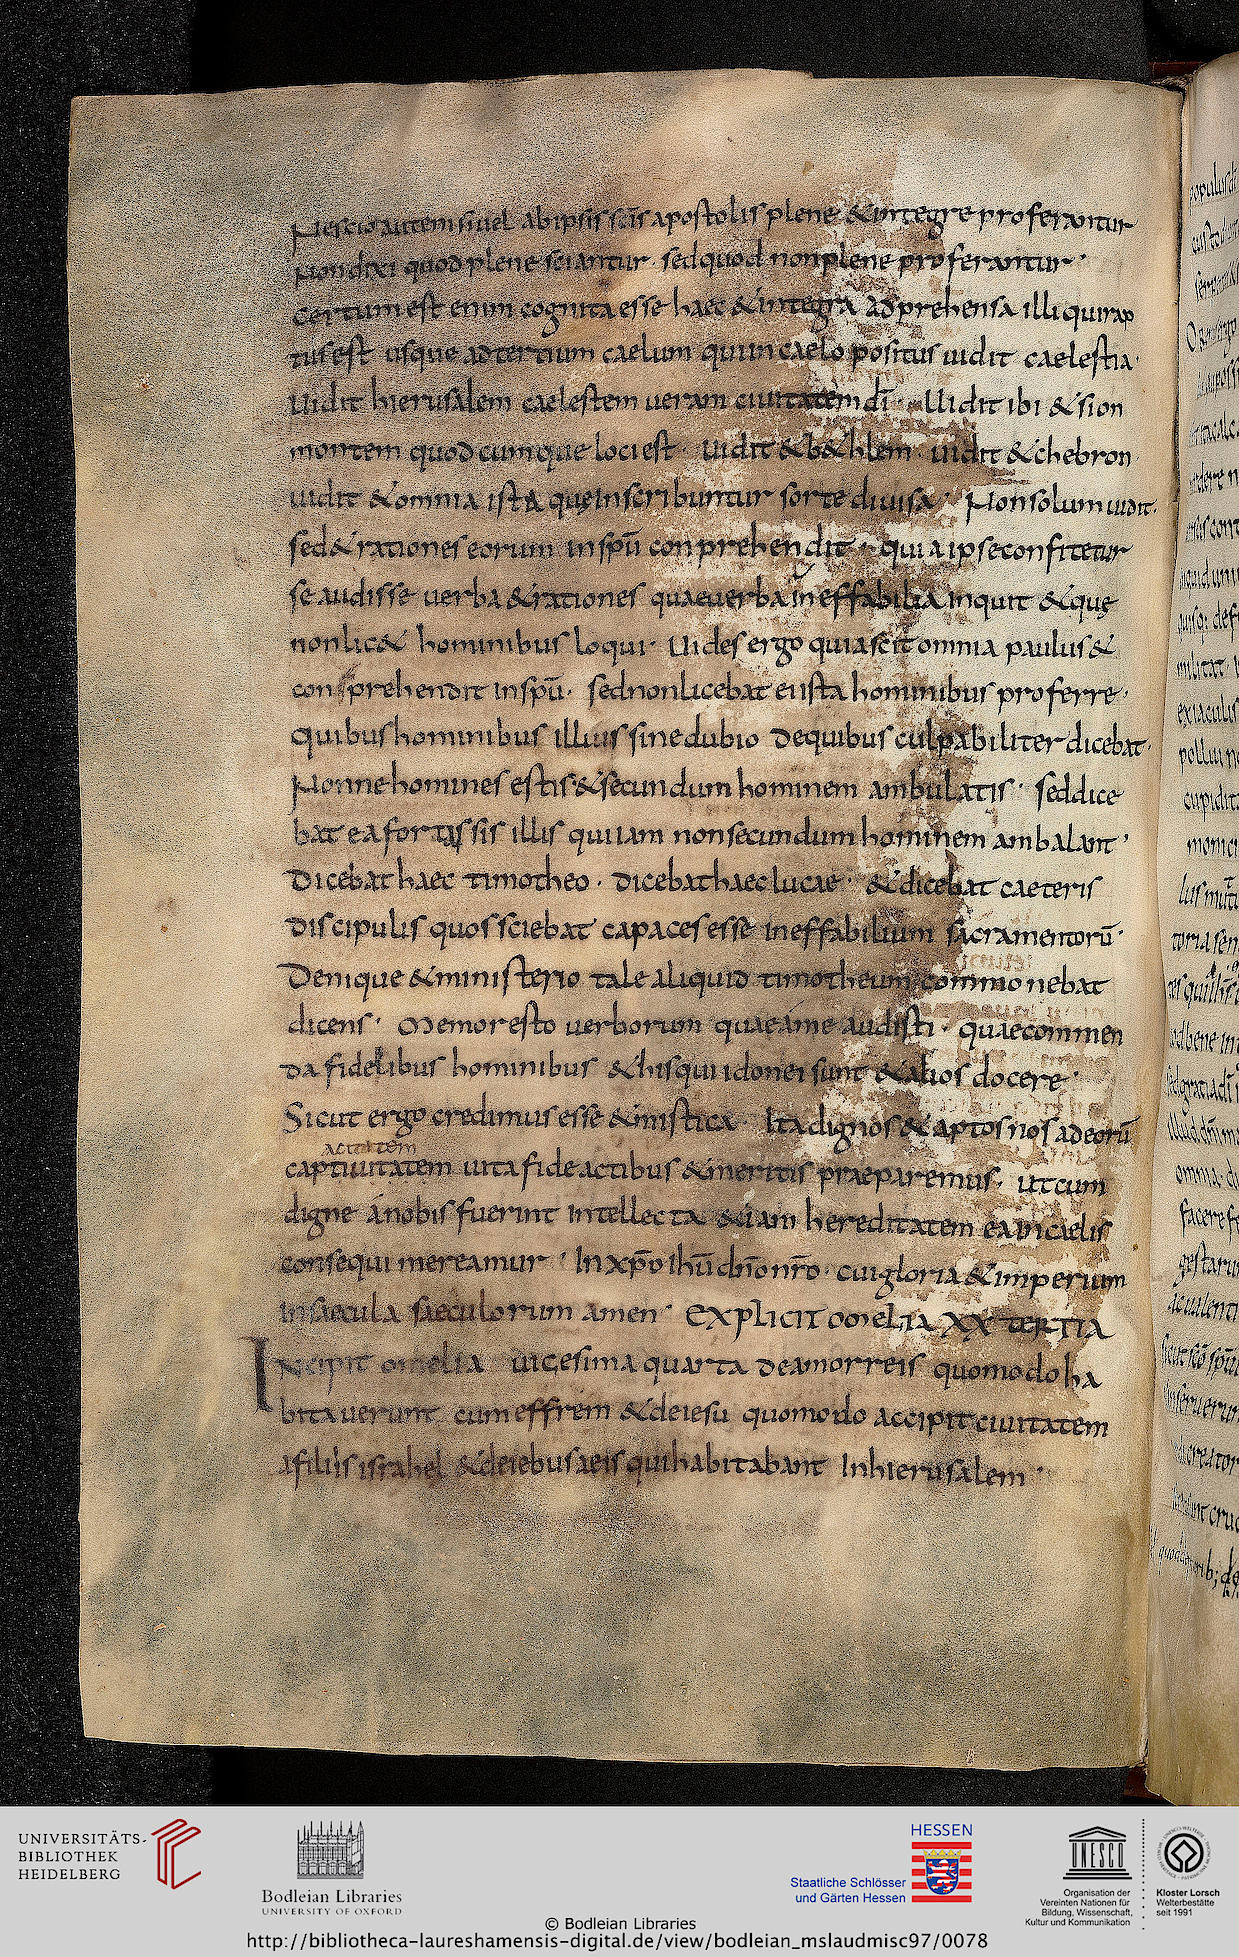 Nescio autem si uel ab ipsis scīs apostolis plene & integre proferantur
Non dixi quod plene sciantur · sed quod non plene proferantur ·
certum est enim cognita esse haec & integra adprehensa illi qui rap
tus est usque ad tertium caelum qui in caelo positus uidit caelestia ·
Uidit hierusalem caelestem ueram ciuitatem dī · Uidit ibi & sion
montem quodcumque loci est · uidit & b&hlem · uidit & chebron
uidit & omnia ista quę inscribuntur sorte diuisa · Non solum uidit ·
sed & rationes eorum in spū conprehendit · quia ipse confitetur
se audisse uerba & rationes quae uerba ineffabilia inquit & quę
non lic& hominibus loqui · Uides ergo quia scit omnia paulus &
conprehendit in spū · sed non licebat ei ista hominibus proferre ·
Quibus hominibus illius sine dubio de quibus culpabiliter dicebat ·
Nonne homines estis · & secundum hominem ambulatis · sed dice
bat ea fortassis illis qui iam non secundum hominem ambalant ·
Dicebat haec timotheo · dicebat haec lucae · & dicebat caeteris
discipulis quos sciebat capaces esse ineffabilium sacramentorū ·
Denique & ministerio tale aliquid timotheum commonebat
dicens · Memor esto uerborum quae a me audisti · quae commen
da fidelibus hominibus & his qui idonei sunt & alios docere ·
Sicut ergo credimus esse & mistica · Ita dignos & aptos nos ad eorū
captiuitatem uita fide actibus & meritis praeparemus · ut cum
digne a nobis fuerint intellecta & iam hereditatem ea in caelis
consequi mereamur · In xp̄o ihū dn̄o nr̄o · cui gloria & imperium
in saecula saeculorum amen · EXPLICIT OMELIA XX TERTIA
INcipit omelia uicesima quarta de amorreis quomodo ha
bitauerunt cum effrem & de iesu quomodo accipit ciuitatem
a filiis israhel & de iebusaeis qui habitabant In hierusalem ·
UNIVERSITÄTS-
BIBLIOTHEK
HEIDELBERG
Bodleian Libraries
UNIVERSITY OF OXFORD
© Bodleian Libraries
http://bibliotheca-laureshamensis-digital.de/view/bodleian_mslaudmisc97/0078
HESSEN
Staatliche Schlösser
und Gärten Hessen
UNESCO
Organisation der
Vereinten Nationen für
Bildung, Wissenschaft,
Kultur und Kommunikation
Kloster Lorsch
Welterbestätte
seit 1991